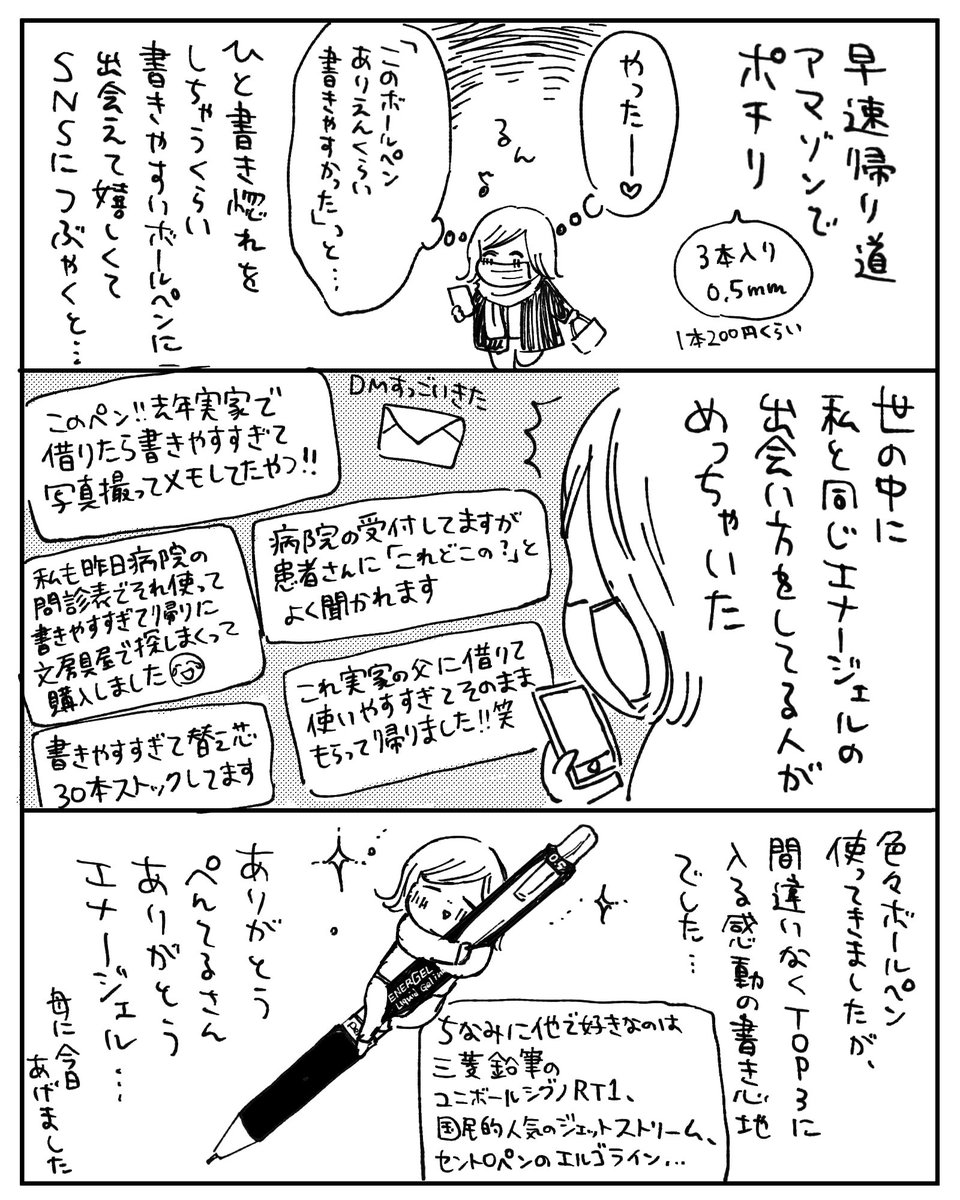 早速帰り道
アマゾンで
ポチリ
3本入り
0.5mm
1本200円くらい
やったー♡
るん♪
「このボールペン
ありえんくらい
書きやすかった」っと…
ひと書き惚れを
しちゃうくらい
書きやすいボールペンに
出会えて嬉しくて
SNSにつぶやくと…
世の中に
私と同じエナージェルの
出会い方をしてる人が
めっちゃいた
DMすっごいきた
このペン!!去年実家で
借りたら書きやすすぎて
写真撮ってメモしてたやつ!!
病院の受付してますが
患者さんに「これどこの?」と
よく聞かれます
私も昨日病院の
問診表でそれ使って
書きやすすぎて帰りに
文房具屋で探しまくって
購入しました
これ実家の父に借りて
使いやすすぎてそのまま
もらって帰りました!!笑
書きやすすぎて替え芯
30本ストックしてます
色々ボールペン
使ってきましたが、
間違いなくTOP3に
入る感動の書き心地
でした…
0.5
ENERGEL
Liquid Gel Ink
ちなみに他で好きなのは
三菱鉛筆の
ユニボールシグノRT1、
国民的人気のジェットストリーム、
セントロペンのエルゴライン…
ありがとう
ぺんてるさん
ありがとう
エナージェル…
母に今日
あげました